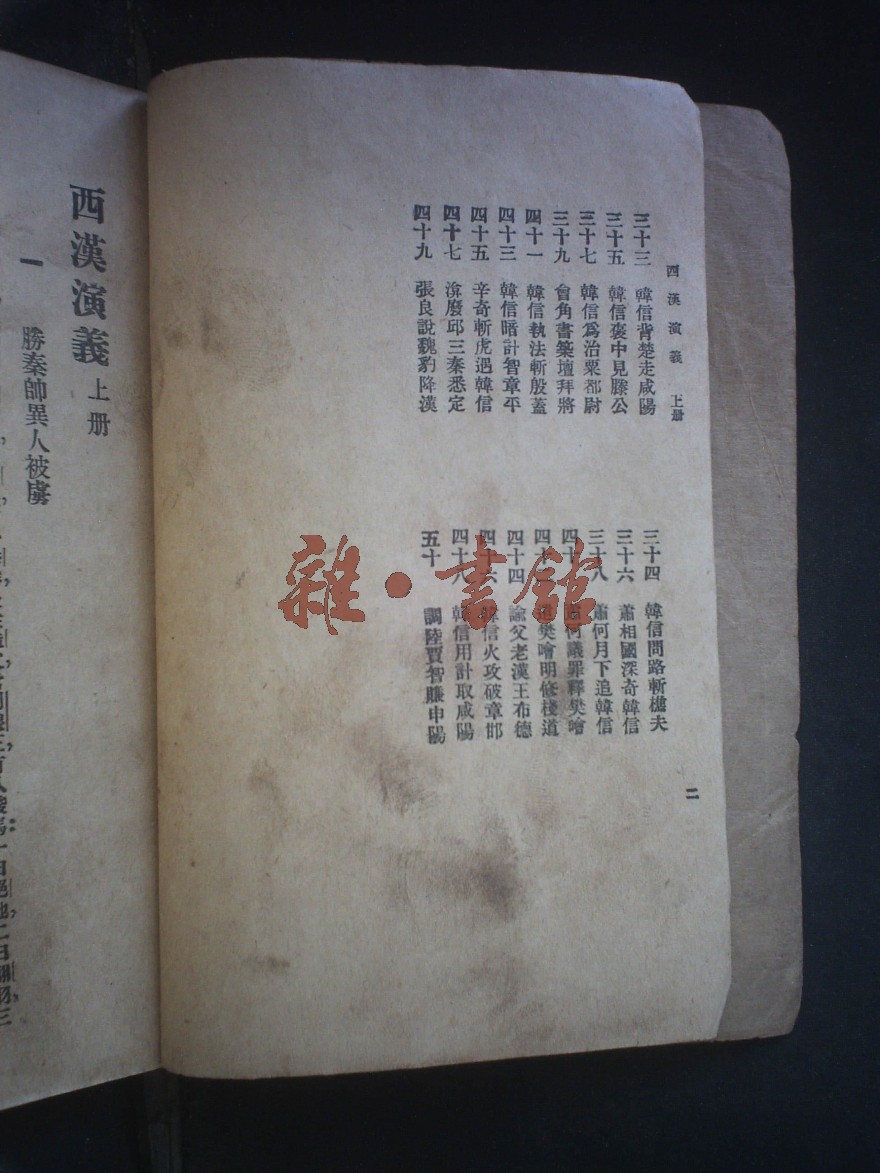 西漢演義 上册
三十三 韓信背楚走咸陽
三十四 韓信問路斬樵夫
三十五 韓信褒中見滕公
三十六 蕭相國深奇韓信
三十七 韓信爲治粟都尉
三十八 蕭何月下追韓信
三十九 會角書築壇拜將
四十 何議罪釋樊噲
四十一 韓信執法斬殷蓋
四十 樊噲明修棧道
四十三 韓信暗計智章平
四十四 諭父老漢王布德
四十五 辛奇斬虎遇韓信
四十六 韓信火攻破章邯
四十七 渰廢邱三秦悉定
四十八 韓信用計取咸陽
四十九 張良說魏豹降漢
五十 調陸賈智賺申陽
二
西漢演義 上册
一 勝秦帥異人被虜
雜·書館